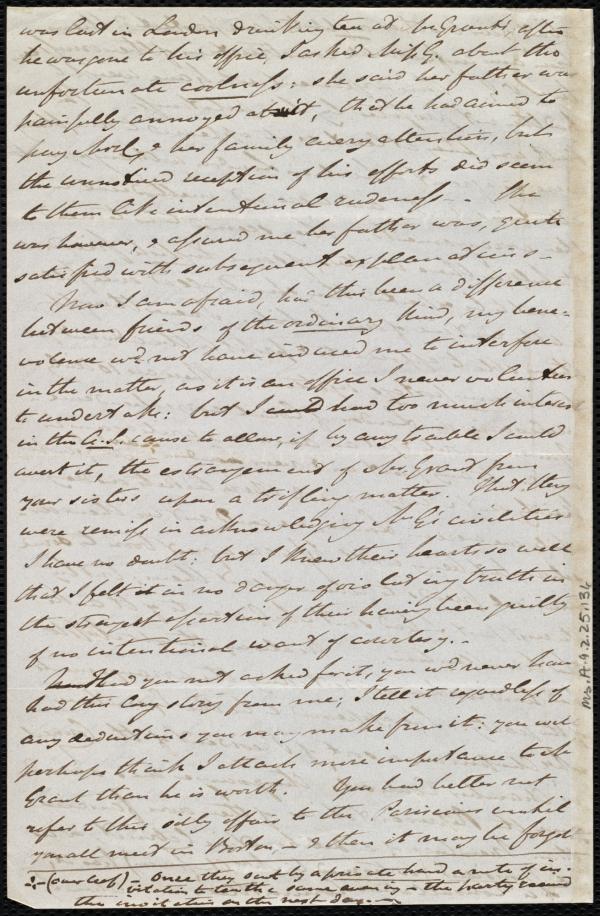 was last in London drinking tea at Mr Grant's, after
he was gone to his office, I asked Miss G. about the
unfortunate coolness: she said her father was
painfully annoyed at it, that he had aimed to
pay & her family every attention, but
the reception of his efforts did seem
to them like intentional rudeness - She
was however, & assured me her father was, quite
satisfied with subsequent explanations -
Now I am afraid, had this been a difference
between friends of the ordinary kind, my bene-
volence wd not have induced me to interfere
in the matter, as it is an office I never volunteer
to undertake: but I had too much interest
in the A.S. cause to allow, if by any trouble I could
avert it, the estrangement of Mr. Grant from
your sisters upon a trifling matter. That they
were remiss in acknowledging Mr G's civilities
I have no doubt: but I knew their hearts so well
that I felt in no danger of violating truth in
the strongest assertions of their having been guilty
of no intentional want of courtesy. -
Had you not asked for it, you wd never have
had this long story from me; I tell it regardless of
any deductions you may make from it: you will
perhaps think I attach more importance to Mr
Grant than he is worth. You had better not
refer to this silly affair to the Parisians until
you all meet in Boston - & then it may be forgot
-:- (over leaf) - Once they sent by a private hand a note of in-
vitation to tea the same evening - the party received
the invitation on the next day. -
Ms. A. 9. 2. 25. 134